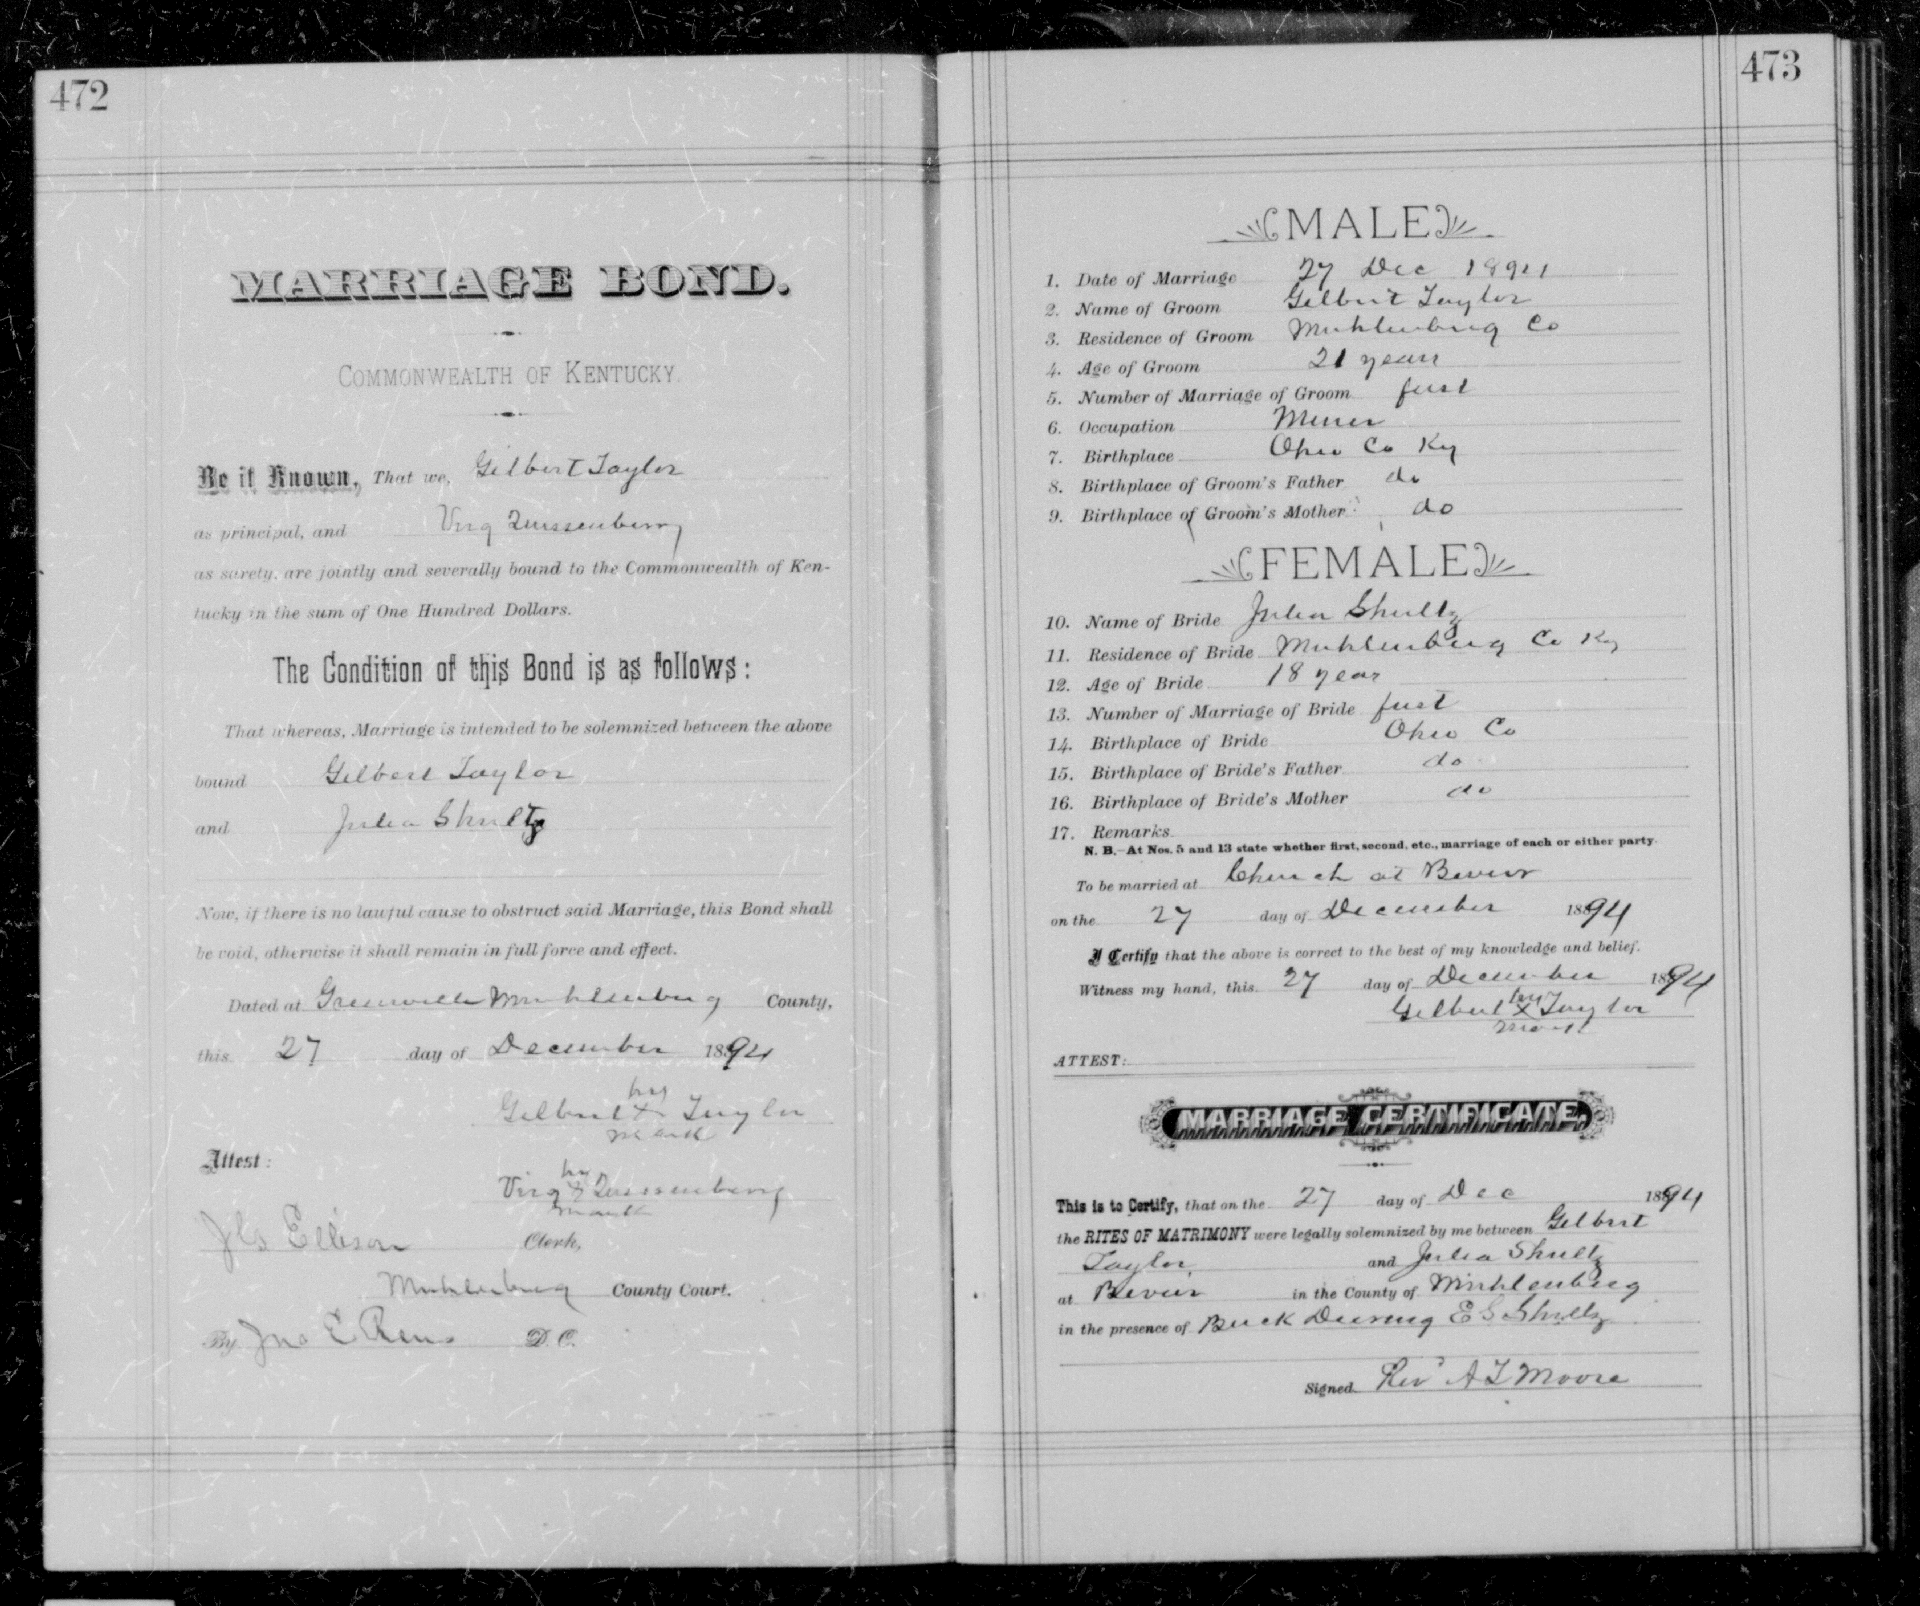 472
MARRIAGE BOND.
COMMONWEALTH OF KENTUCKY.
Be it Known, That we, Gilbert Taylor
as principal, and Virg
as surety, are jointly and severally bound to the Commonwealth of Ken-
tucky in the sum of One Hundred Dollars.
The Condition of this Bond is as follows:
That whereas, Marriage is intended to be solemnized between the above
bound Gilbert Taylor
and Julia Shultz
Now, if there is no lawful cause to obstruct said Marriage, this Bond shall
be void, otherwise it shall remain in full force and effect.
Dated at Greenville Muhlenburg County,
this 27 day of December 1894
his
Gilbert x Taylor
mark
Attest:
his
Virg x
mark
Ellison Clerk,
Muhlenburg County Court.
By Jno E Reno D. C.
473
MALE
1. Date of Marriage 27 Dec 1894
2. Name of Groom Gilbert Taylor
3. Residence of Groom Muhlenburg Co
4. Age of Groom 21 years
5. Number of Marriage of Groom first
6. Occupation Miner
7. Birthplace Ohio Co Ky
8. Birthplace of Groom's Father do
9. Birthplace of Groom's Mother do
FEMALE
10. Name of Bride Julia Shultz
11. Residence of Bride Muhlenburg Co Ky
12. Age of Bride 18 year
13. Number of Marriage of Bride first
14. Birthplace of Bride Ohio Co
15. Birthplace of Bride's Father do
16. Birthplace of Bride's Mother do
17. Remarks
N. B.—At Nos. 5 and 13 state whether first, second, etc., marriage of each or either party.
To be married at Church at Bevier
on the 27 day of December 1894
I Certify that the above is correct to the best of my knowledge and belief.
Witness my hand, this 27 day of December 1894
his
Gilbert x Taylor
mark
ATTEST:
MARRIAGE CERTIFICATE.
This is to Certify, that on the 27 day of Dec 1894
the RITES OF MATRIMONY were legally solemnized by me between Gilbert
Taylor and Julia Shultz
at Bevier in the County of Muhlenburg
in the presence of Buck E S Shultz
Signed Rev A T Moore